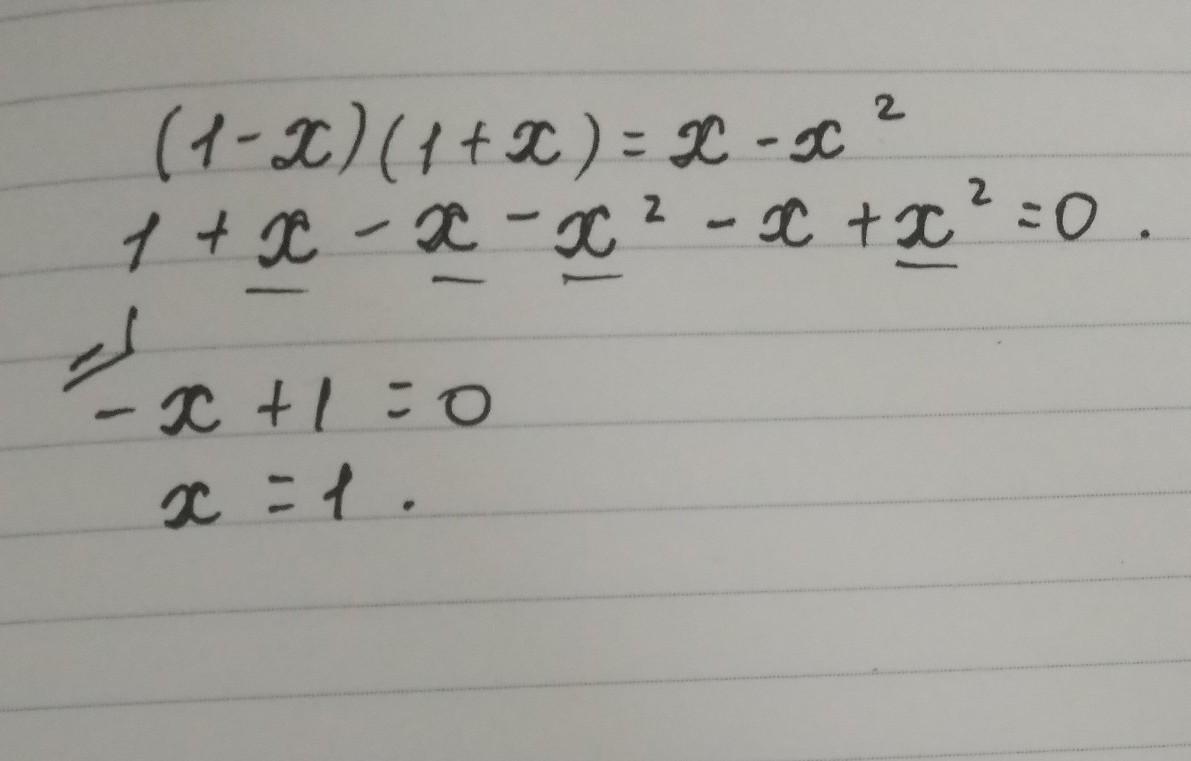 (1-x)(1+x)=x-x²
1+x-x-x²-x+x²=0.
⇒
-x+1=0
x=1.